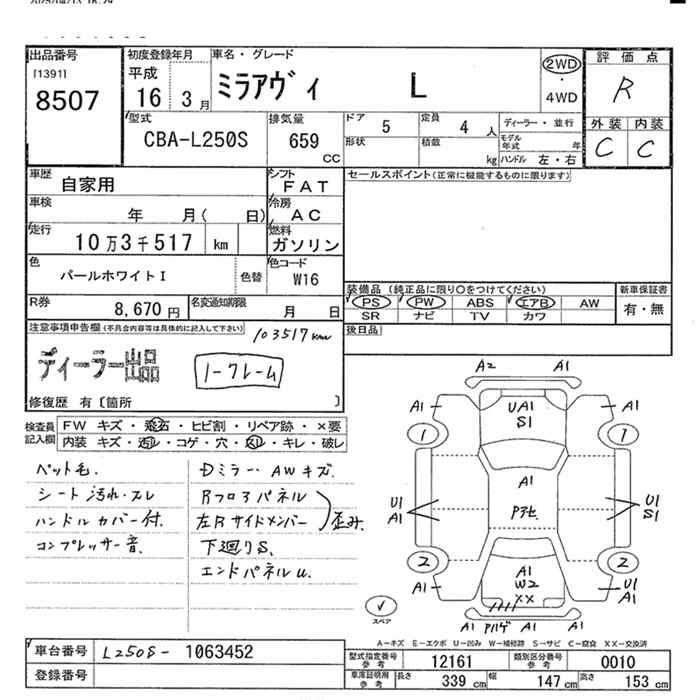 出品番号
[1391]
8507
初度登録年月
平成
16 3月
車名・グレード
ミラアヴィ L
2WD
・
4WD
評価点
R
外装 内装
C C
型式
CBA-L250S
排気量
659
CC
ドア
5
定員
4 人
ディーラー・並行
形状
積載
kg
モデル
年式 年
ハンドル 左・右
車歴
自家用
シフト
FAT
セールスポイント(正常に機能するものに限ります)
車検
年 月( 日)
冷房
AC
走行
10万3千517 km
燃料
ガソリン
色
パールホワイトI
色替
色コード
W16
装備品 (純正品に限り○をつけてください)
PS PW ABS エアB AW
SR ナビ TV カワ
新車保証書
有・無
R券
8,670 円
名変通知期限
月 日
後日品
注意事項申告欄(不具合内容等は具体的に記入して下さい)
103517km
ディーラー出品
1-クレーム
修復歴 有〔箇所 〕
検査員
記入欄
FW キズ・飛石・ヒビ割・リペア跡・×要
内装 キズ・汚レ・コゲ・穴・スレ・キレ・破レ
ペット毛.
シート汚れ・スレ
ハンドルカバー付.
コンプレッサー音.
Dミラー・AWキズ.
Rフロアパネル
左Rサイドメンバー
歪み.
下廻りS.
エンドパネルU.
A2 A1
A1 UA1 A1
S1
1 1
A1
Pアセ.
U1 U1
A1 S1
2 2
A1 A1 U1
W2 A1
XX
A1 Pハゲ A1 A1
✓
スペア
A-キズ E-エクボ U-凹み W-補修跡 S-サビ C-腐食 XX-交換済
車台番号
L250S- 1063452
登録番号
型式指定番号
参考
12161
類別区分番号
参考
0010
車庫証明用
参考
長さ
339 cm
幅
147 cm
高さ
153 cm